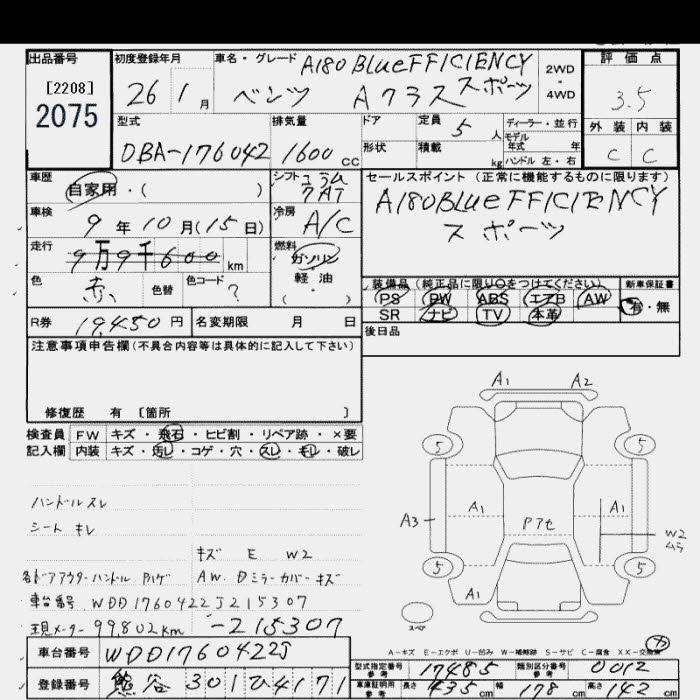 出品番号 初度登録年月 車名・グレード A180 BlueEFFICIENCY 2WD・4WD 評価点
[2208]
2075
26 1月 ベンツ Aクラス スポーツ 3.5
型式 排気量 ドア 定員 5人 ディーラー・並行 外装 内装
DBA-176042 1600cc 形状 積載 kg モデル年式 年 ハンドル 左・右 C C
車歴 自家用・( ) シフト コラム 7AT セールスポイント(正常に機能するものに限ります)
車検 9年10月(15日) 冷房 A/C A180 BlueEFFICIENCY
スポーツ
走行 9万9千600km 燃料 ガソリン
軽・油
・( )
色 赤 色替 色コード ? 装備品(純正品に限り○をつけてください) 新車保証書
PS PW ABS エアB AW 有・無
R券 19,450円 名変期限 月 日 SR ナビ TV 本革
後日品
注意事項申告欄(不具合内容等は具体的に記入して下さい)
修復歴 有 [箇所 ]
検査員 FW キズ・飛石・ヒビ割・リペア跡・×要
記入欄 内装 キズ・汚レ・コゲ・穴・スレ・キレ・破レ
ハンドル スレ
シート キレ
キズ E W2
各ドアアウターハンドル Pハゲ AW. Dミラーカバーキズ
車台番号 WDD1760422J215307
現メーター 99,802km -215307
車台番号 WDD1760422J
登録番号 熊谷 301 ひ 4171
A1 A2
5 5
A3 A1 Pアセ A1
W2
ムラ
5 5
A1
スペア
A-キズ E-エクボ U-凹み W-補修跡 S-サビ C-腐食 XX-交換済
型式指定番号 参考 17485 類別区分番号 参考 0012
車庫証明用 参考 長さ 435cm 幅 178cm 高さ 142cm